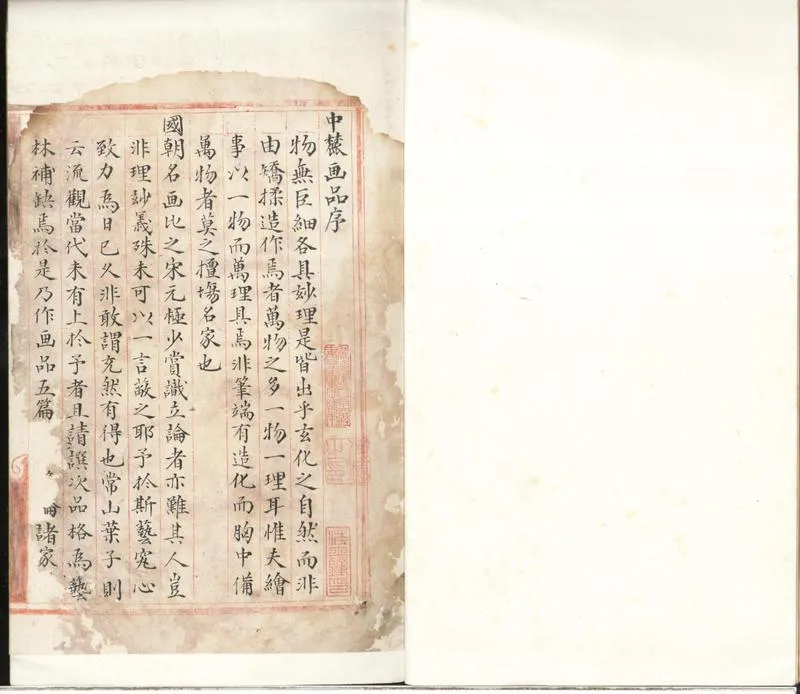 中麓画品序
物無巨細各具妙理是皆出乎玄化之自然而非
由矯揉造作焉者萬物之多一物一理耳惟夫繪
事以一物而萬理具焉非筆端有造化而胸中備
萬物者莫之擅場名家也
國朝名画比之宋元極少賞識立論者亦難其人豈
非理妙義殊未可以一言蔽之耶予於斯藝究心
致力為日已久非敢謂充然有得也常山葉子則
云流觀當代未有上於予者且請譔次品格為藝
林補缺焉於是乃作画品五篇
諸家